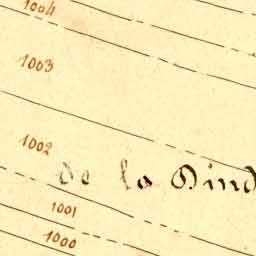 1004
1003
1002
de la Dind
1001
1000